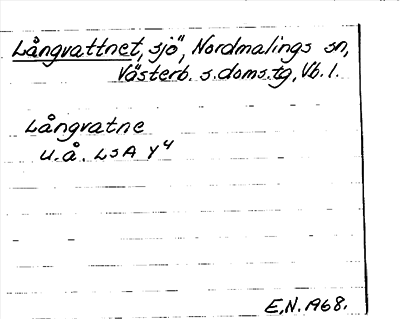 Långvattnet, sjö, Nordmalings sn,
Västerb. s. doms. tg, Vb. l.
Långvatne
u.å. LSA Y4
E.N. 1968.